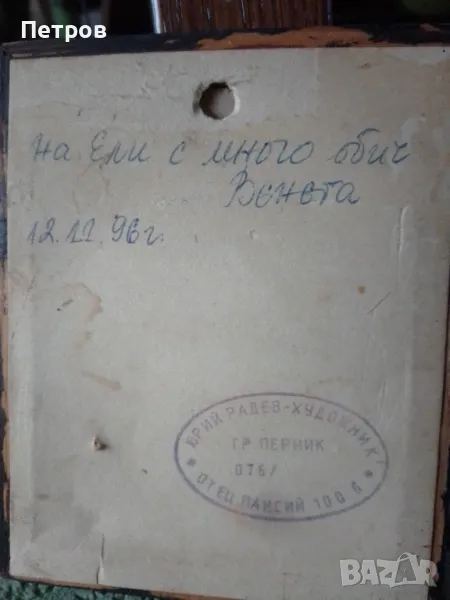 Петров
на Ели с много обич
Венета
12.11.96г.
ЮРИЙ РАДЕВ-ХУДОЖНИК
ГР ПЕРНИК
076/
* ОТЕЦ ПАИСИЙ 100 Б *
BAZAR